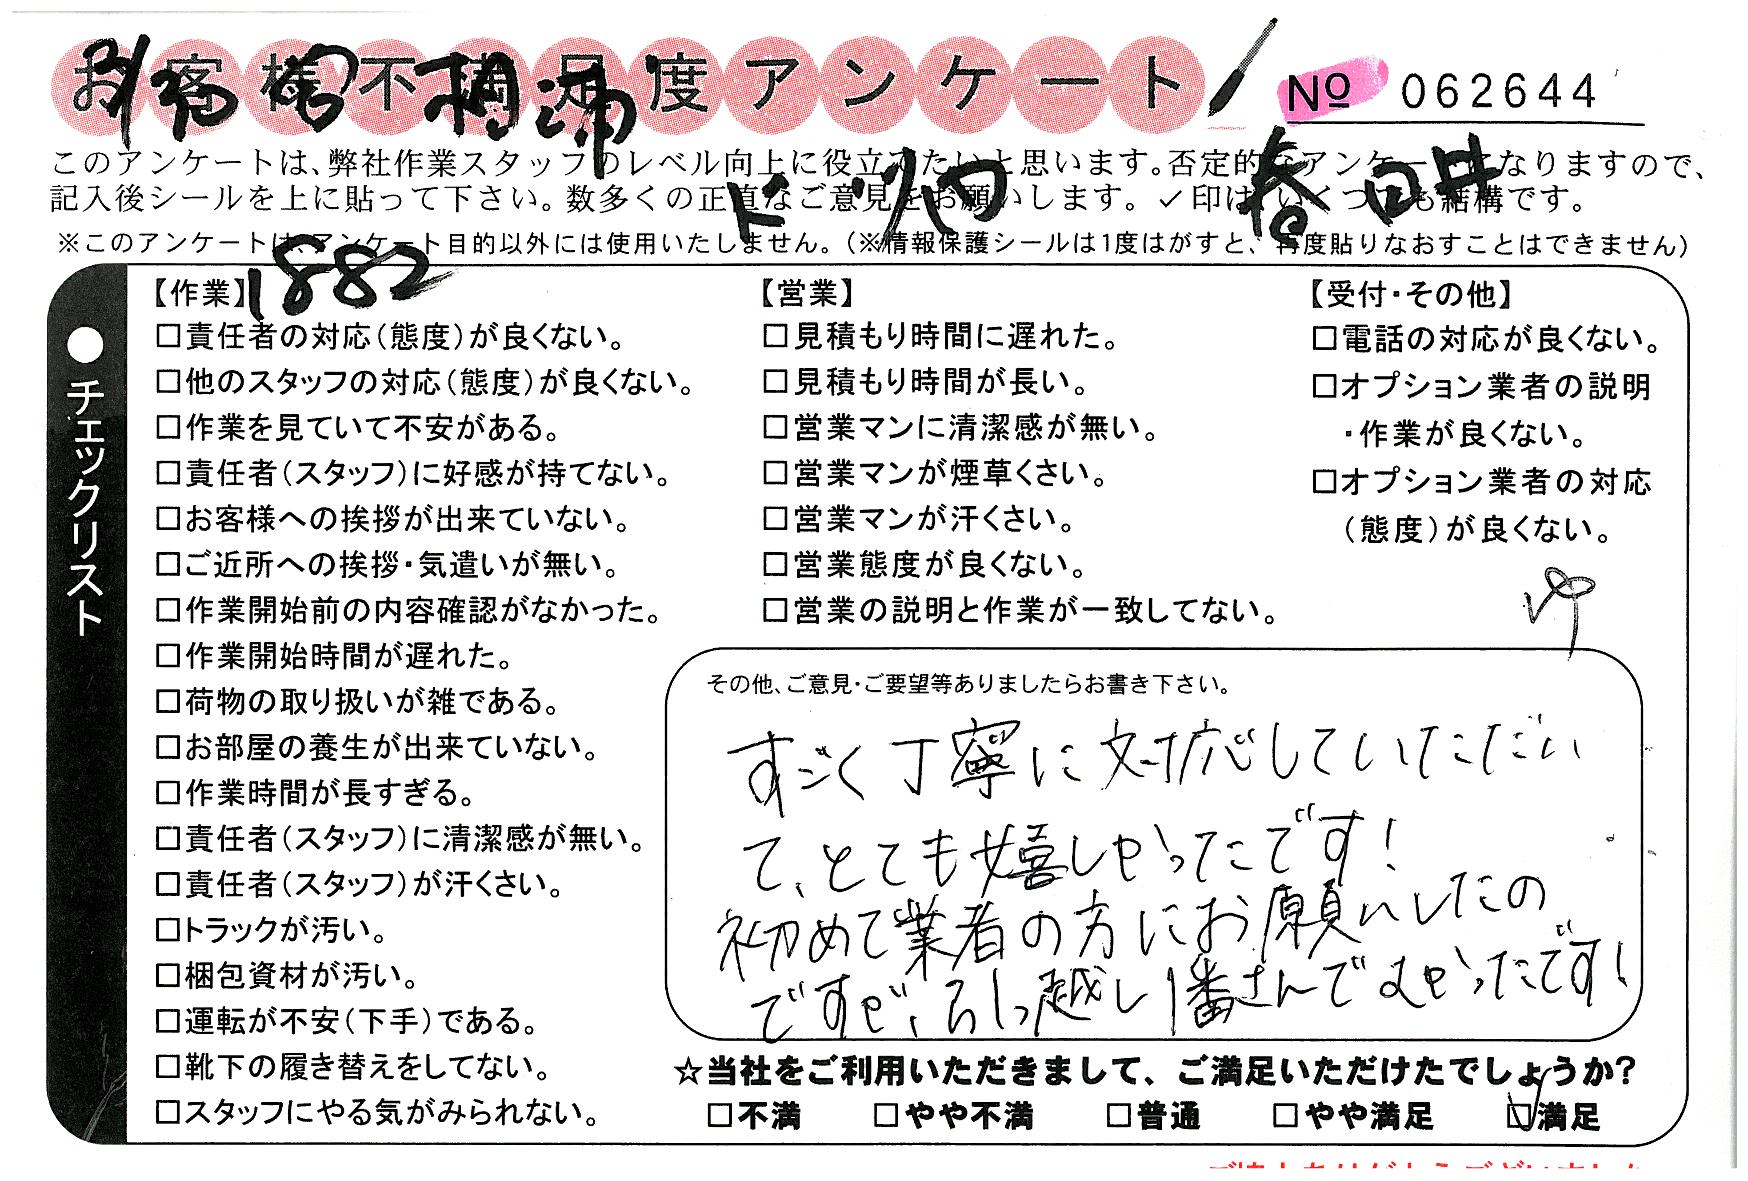 お客様不満足度アンケート
No 062644
このアンケートは、弊社作業スタッフのレベル向上に役立てたいと思います。否定的なアンケートになりますので、
記入後シールを上に貼って下さい。数多くの正直なご意見をお願いします。✓印はいくつでも結構です。
※このアンケートは、アンケート目的以外には使用いたしません。(※情報保護シールは1度はがすと、再度貼りなおすことはできません)
春日井
1882
●チェックリスト
【作業】
□責任者の対応(態度)が良くない。
□他のスタッフの対応(態度)が良くない。
□作業を見ていて不安がある。
□責任者(スタッフ)に好感が持てない。
□お客様への挨拶が出来ていない。
□ご近所への挨拶・気遣いが無い。
□作業開始前の内容確認がなかった。
□作業開始時間が遅れた。
□荷物の取り扱いが雑である。
□お部屋の養生が出来ていない。
□作業時間が長すぎる。
□責任者(スタッフ)に清潔感が無い。
□責任者(スタッフ)が汗くさい。
□トラックが汚い。
□梱包資材が汚い。
□運転が不安(下手)である。
□靴下の履き替えをしてない。
□スタッフにやる気がみられない。
【営業】
□見積もり時間に遅れた。
□見積もり時間が長い。
□営業マンに清潔感が無い。
□営業マンが煙草くさい。
□営業マンが汗くさい。
□営業態度が良くない。
□営業の説明と作業が一致してない。
【受付・その他】
□電話の対応が良くない。
□オプション業者の説明
・作業が良くない。
□オプション業者の対応
(態度)が良くない。
その他、ご意見・ご要望等ありましたらお書き下さい。
すごく丁寧に対応していただい
て、とても嬉しかったです!
初めて業者の方にお願いしたの
ですが、引っ越し1番さんでよかったです!
☆当社をご利用いただきまして、ご満足いただけたでしょうか?
□不満 □やや不満 □普通 □やや満足 ☑満足